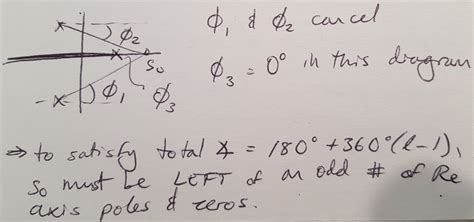 ϕ₁ & ϕ₂ cancel
ϕ₂
S₀
ϕ₃ = 0° in this diagram
ϕ₁
ϕ₃
⇒ to satisfy total ∡ = 180° + 360°(l-1),
so must be LEFT of an odd # of Re
axis poles & zeros.